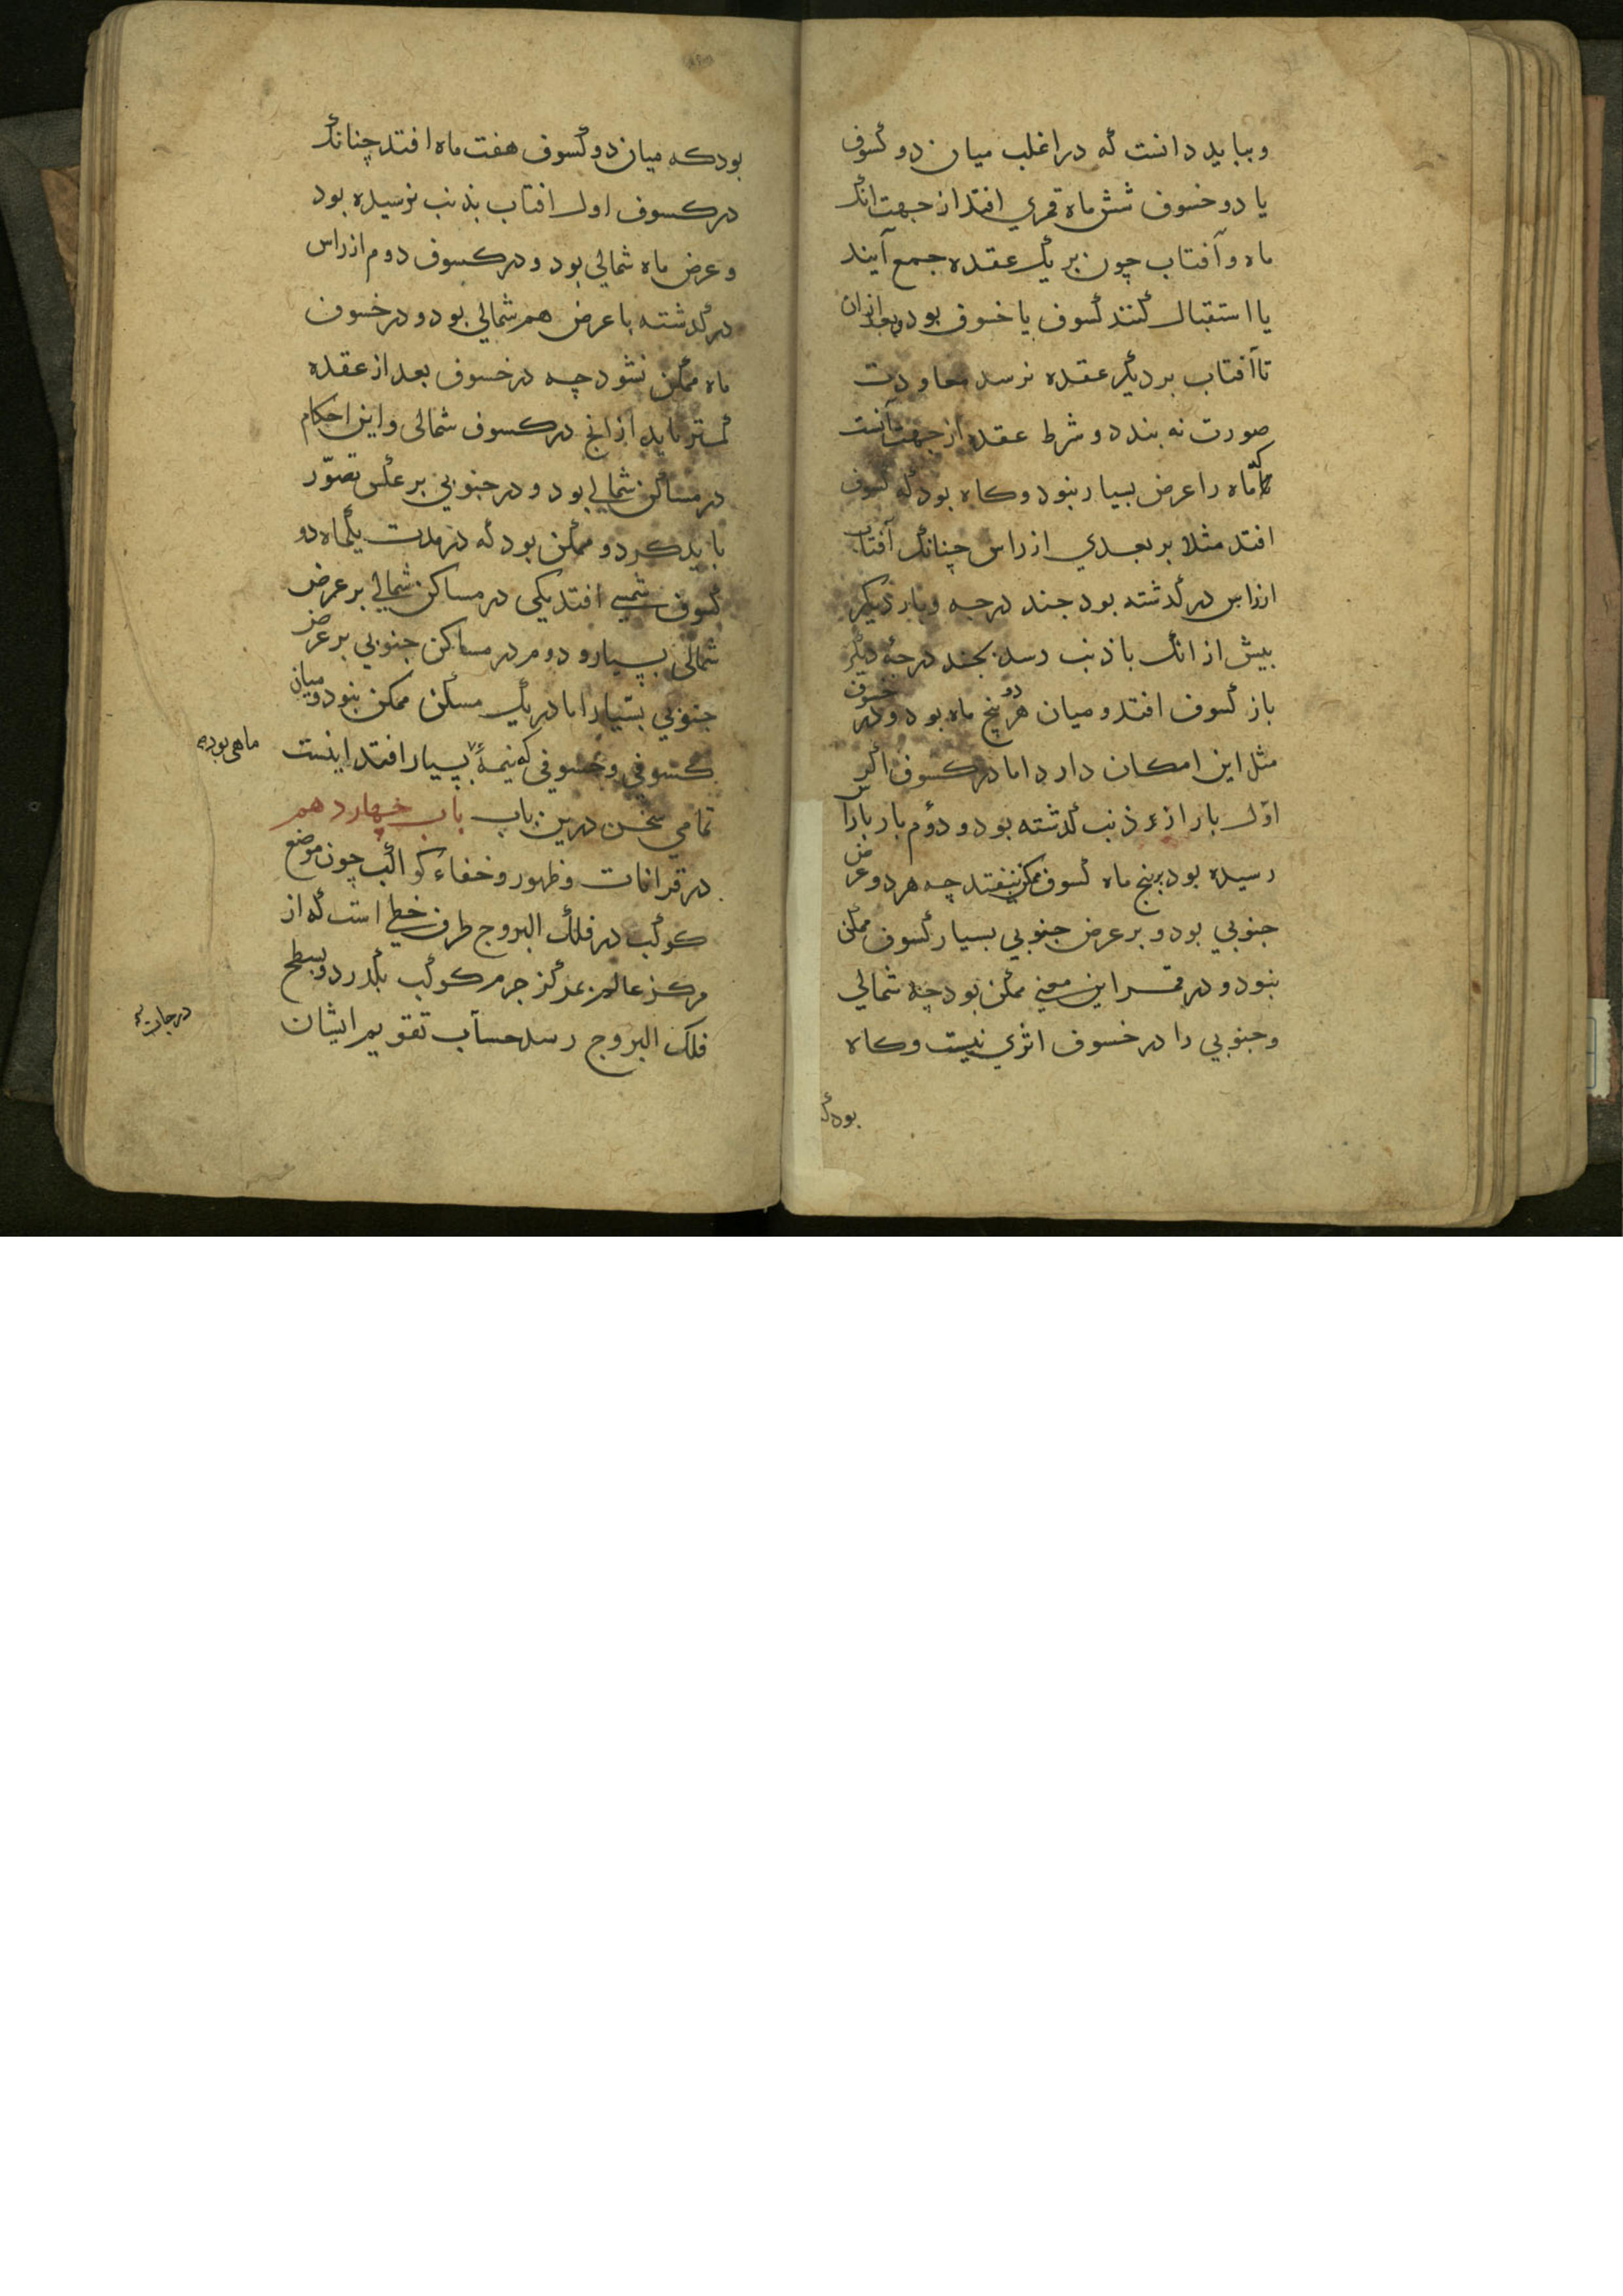 وبباید دانست که در اغلب میان دو کسوف
یا دو خسوف شش ماه قمری افتد از جهت انک
ماه و آفتاب چون بر یک عقده جمع آیند
یا استقبال کنند کسوف یا خسوف بود و بعد از ان
تا آفتاب بر دیگر عقده نرسد معاودت
صورت نه بندد و شرط عقده از جهت آنست
تا ماه را عرض بسیار نبود و کاه بود که کسوف
افتد مثلا بر بعدی از راس چنانک آفتاب
از راس در گذشته بود جند درجه و بار دیگر
بیش از انک با ذنب رسد بجند درجه دیگر
باز کسوف افتد و میان هر دو پنج ماه بود و در خسوف
مثل این امکان دارد اما در کسوف اگر
اول بار از ذنب گذشته بود و دوم بار با راس
رسیده بود بر پنج ماه کسوف ممکن نیفتد چه هر دو عرض
جنوبی بود و بر عرض جنوبی بسیار کسوف ممکن
نبود و در قمر این معنی ممکن بود چه شمالی
و جنوبی را در خسوف اثری نیست و کاه
بود که
بود که میان دو کسوف هفت ماه افتد چنانک
در کسوف اول افتاب بذنب نرسیده بود
و عرض ماه شمالی بود و در کسوف دوم از راس
در گذشته با عرض هم شمالی بود و در خسوف
ماه ممکن نشود چه در خسوف بعد از عقده
کمتر باید از انچ در کسوف شمالی و این احکام
در مساکن شمالی بود و در جنوبی بر عکس تصوّر
باید کرد و ممکن بود که در مدت یکماه دو
کسوف شمسی افتد یکی در مساکن شمالی بر عرض
شمالی بسیار و دوم در مساکن جنوبی بر عرض
جنوبی بسیار اما در یک مسکن ممکن نبود و میان
کسوفی و خسوفی که نیمهٔ بسیار افتد اینست
ماهی بوده
تمامی سخن درین باب باب چهاردهم
در قرانات و ظهور و خفاء کواکب چون موضع
کوکب در فلک البروج طرف خطی است که از
مرکز عالم بمرکز جرم کوکب بگذرد و بسطح
فلک البروج رسد حساب تقویم ایشان
درجات